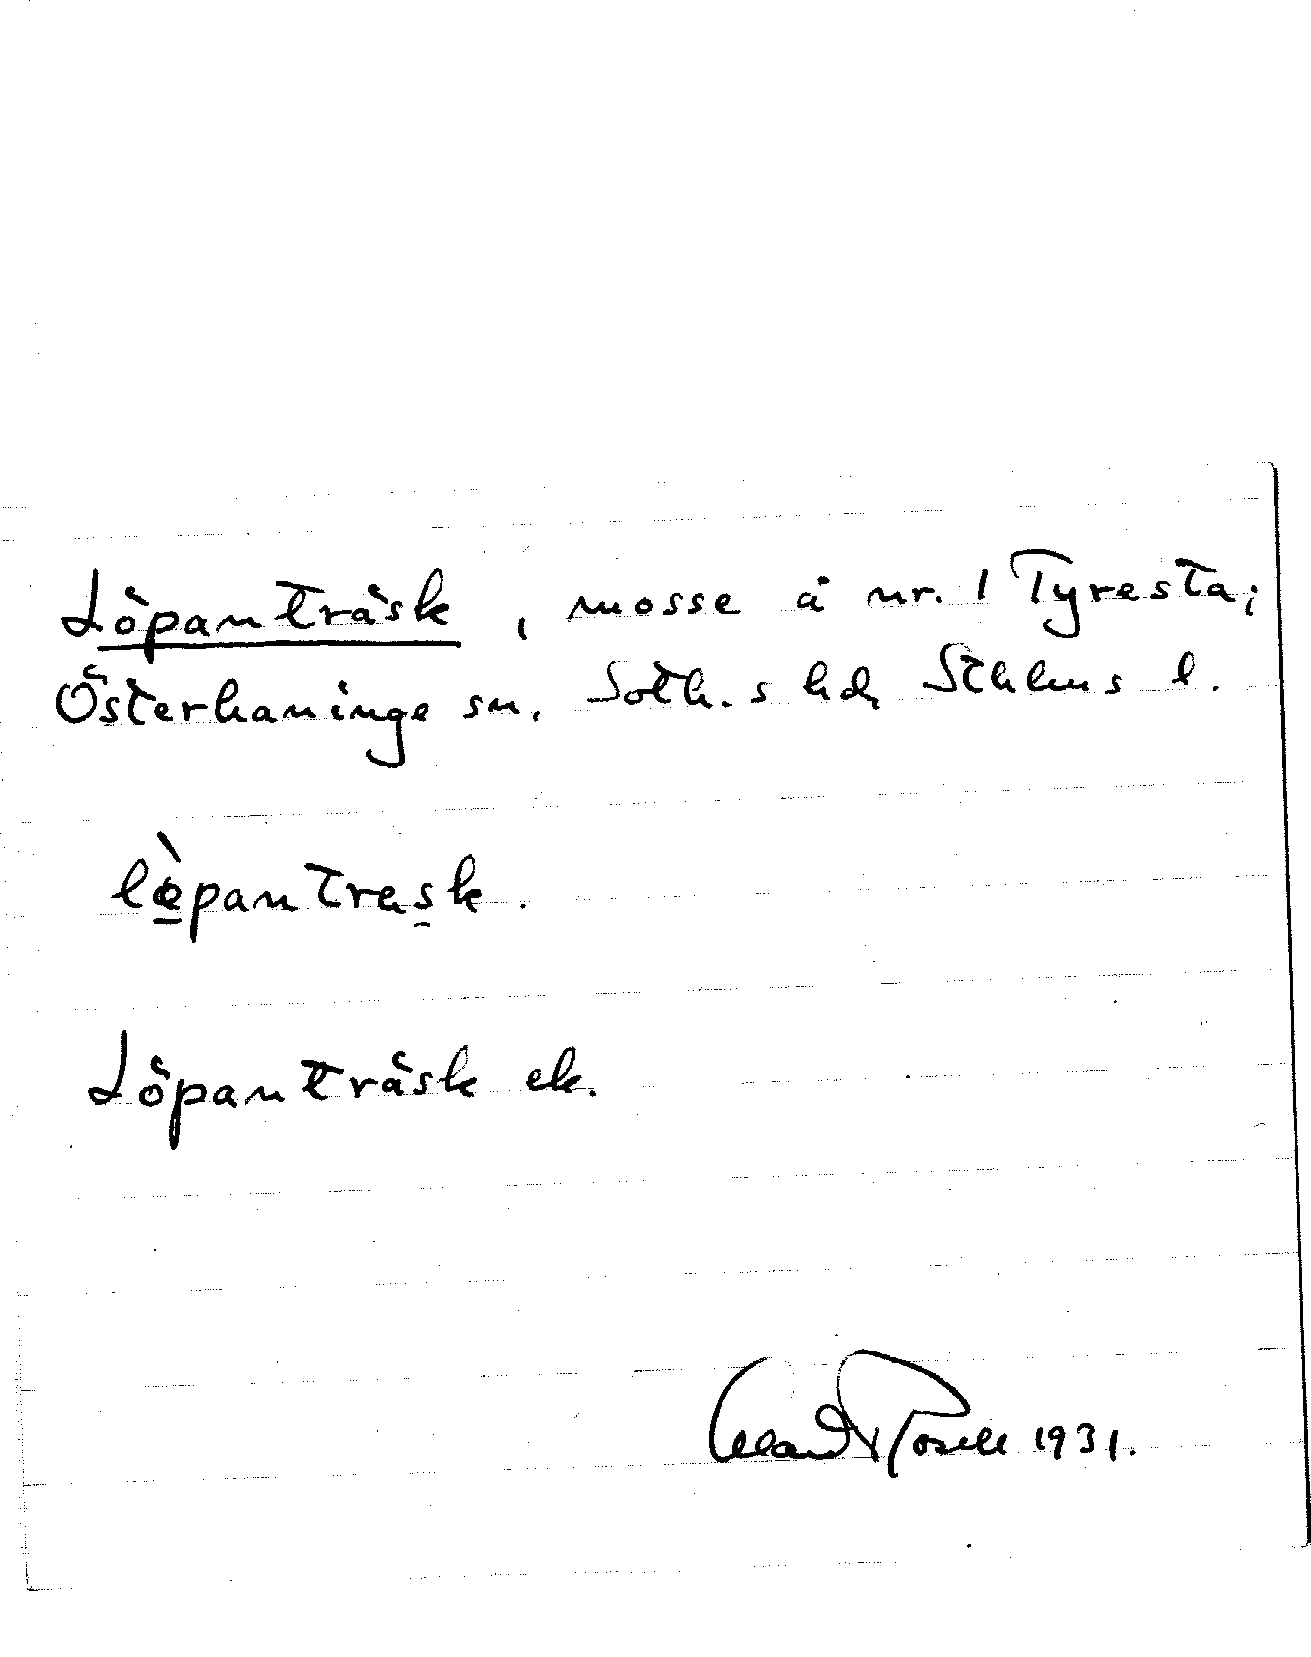 Löpanträsk, mosse å nr. 1 Tyresta;
Österhaninge sn. Soth. s hd, Sthlms l.
lø̀pantrask.
Löpanträsk ek.
Erland Rosell 1931.